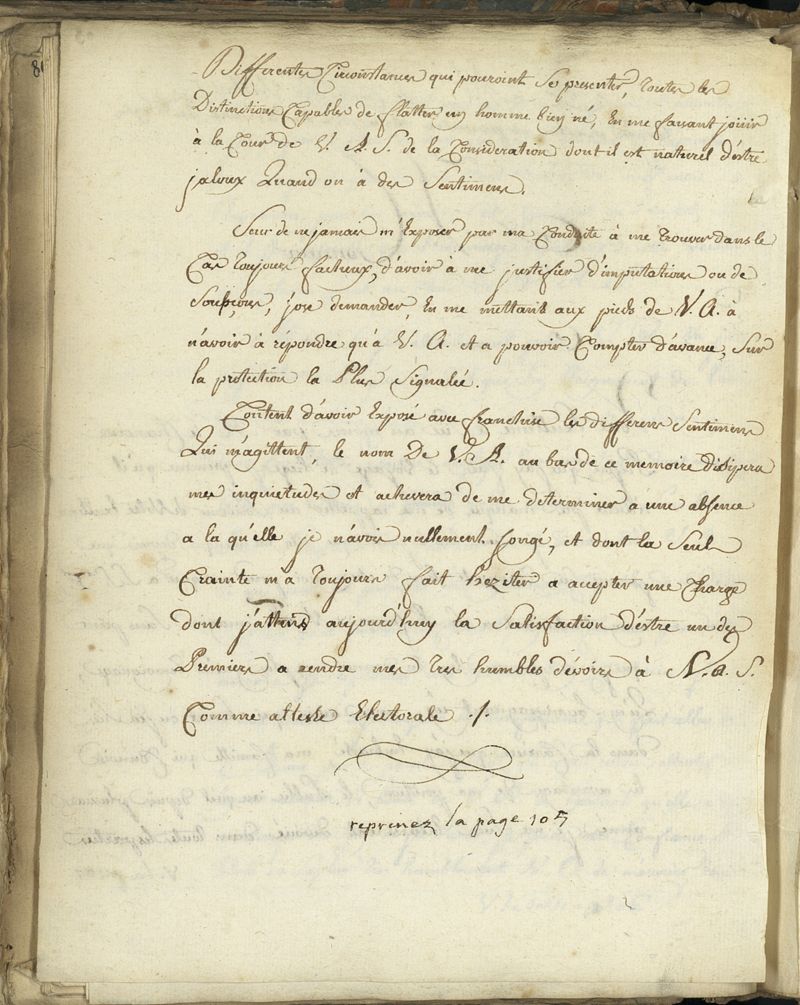 8
Differentes Circonstances qui pouroint Se presenter, toutes les
Distinctions Capables de flatter un homme bien né, En me faisant jouir
à la Cour de V. A. S. de la Consideration dont il est naturel d'éstre
jaloux Quand on à des Sentimens.
Seur de ne jamais m'Exposer par ma Conduite à me trouver dans le
Cas toujours facheux, d'avoir à me justifier d'imputations ou de
Soupçons, j'ose demander, En me mettant aux pieds de V. A. à
n'avoir à répondre qu'à V. A. et a pouvoir Compter d'avance, Sur
la protection la Plus Signalée.
Content d'avoir Exposé avec franchise les differens Sentimens
Qui m'agittent, le nom De V. A. au bas de ce memoire dissipera
mes inquietudes et achevera de me determiner a une absence
a la qu'elle je n'avois nullement songé, et dont la Seule
Crainte m'a toujours fait heziter a accepter une Charge
dont j'attens aujourd'huy la Satisfaction d'éstre un des
Premiers a rendre mes tres humbles dévoirs à V. A. S.
Comme altesse Electorale ./.
reprenez la page 105